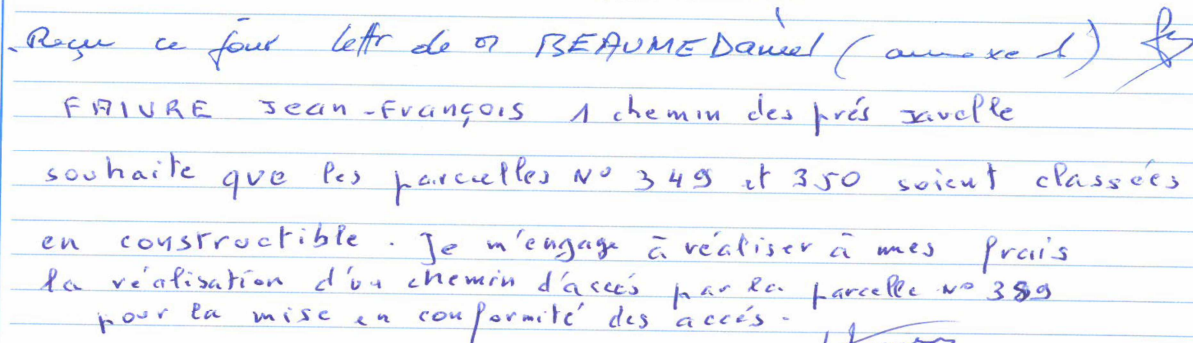 - Reçu ce jour lettr de M BEAUME Daniel (annexe 1)
FAIVRE Jean-François 1 chemin des prés Javelle
souhaite que les parcelles N° 349 et 350 soient classées
en constructible. Je m'engage à réaliser à mes frais
la réalisation d'un chemin d'accès par la parcelle N° 389
pour la mise en conformité des accés.